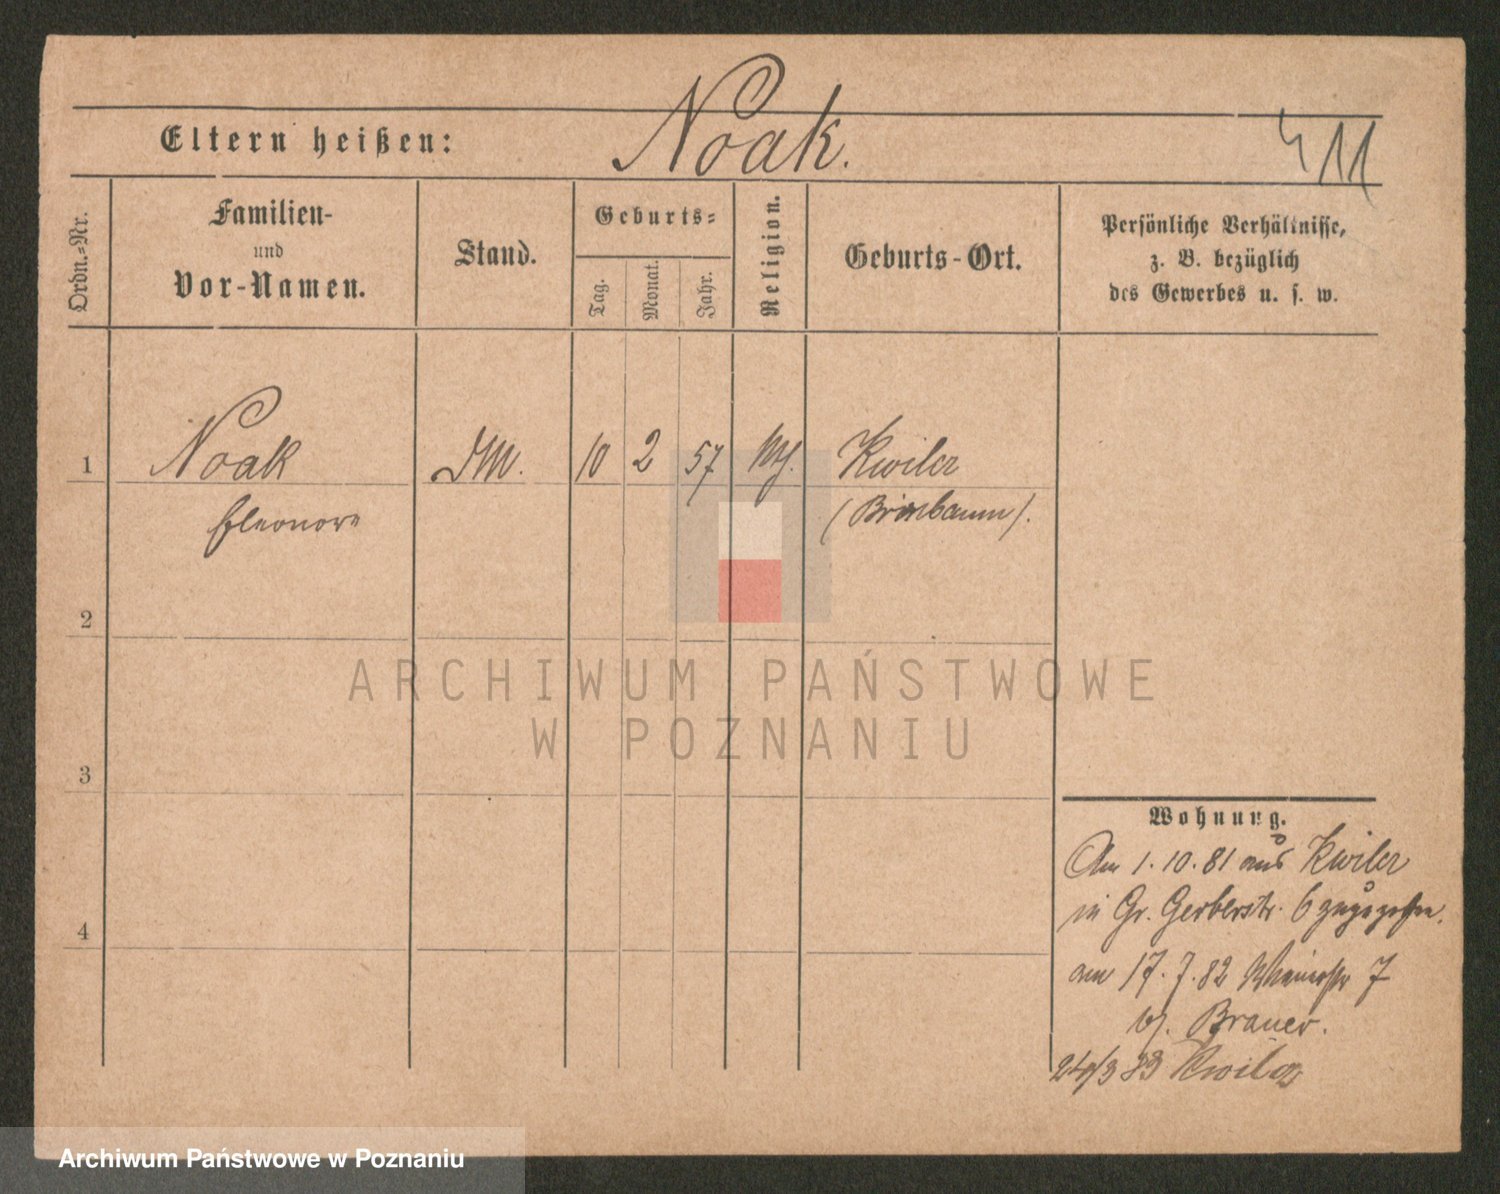 Eltern heißen: Noak. 411
Ordn.-Nr.
Familien-
und
Vor-Namen.
Stand.
Geburts-
Tag.
Monat.
Jahr.
Religion.
Geburts-Ort.
Persönliche Verhältnisse,
z. B. bezüglich
des Gewerbes u. s. w.
1 Noak DM. 10 2 57 Kwilcz
Eleonore (Birnbaum).
2
3
4
Wohnung.
Am 1.10.81 aus Kwilcz
in Gr. Gerberstr. 6 zugezogen.
am 17.7.82 7
bj. Brauer.
24/3 83 Kwilcz
ARCHIWUM PAŃSTWOWE
W POZNANIU
Archiwum Państwowe w Poznaniu